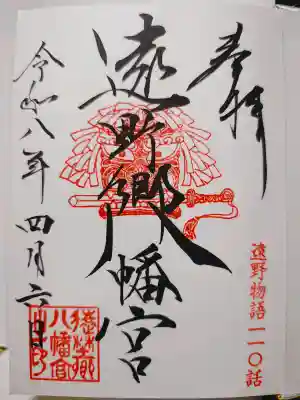 奉拝
遠野郷八幡宮
令和八年四月六日
遠野物語一一〇話
遠野郷
八幡宮